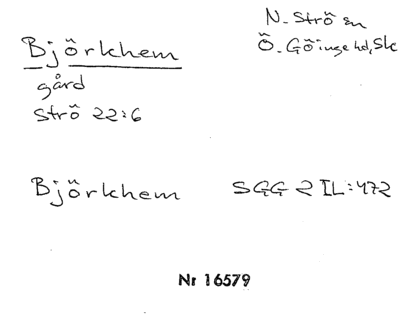 Björkhem
gård
Strö 22:6
N. Strö sn
Ö. Göinge hd, Sk
Björkhem SGG 2 IL:472
Nr 16579